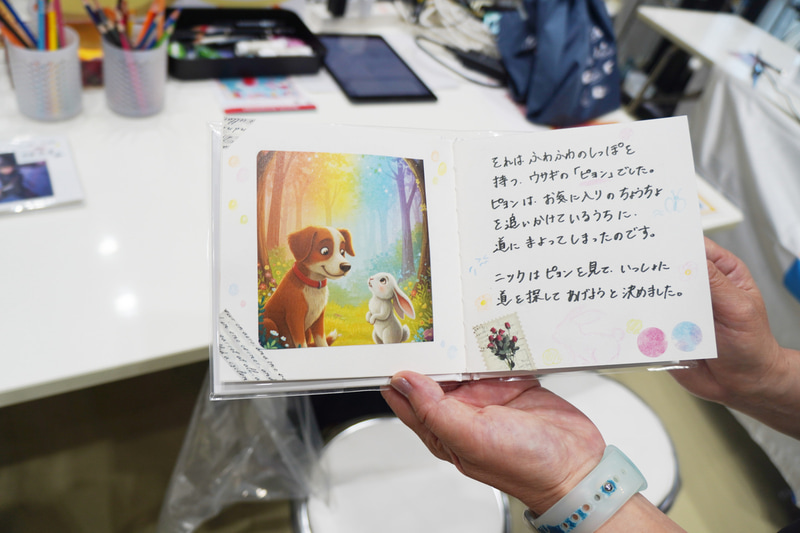 それは ふわふわのしっぽを
持つ、ウサギの「ピョン」でした。
ピョンは、お気に入りのちょうちょ
を追いかけているうちに、
道に まよってしまったのです。
ニックは ピョンを見て、いっしょに
道を探して あげようと決めました。